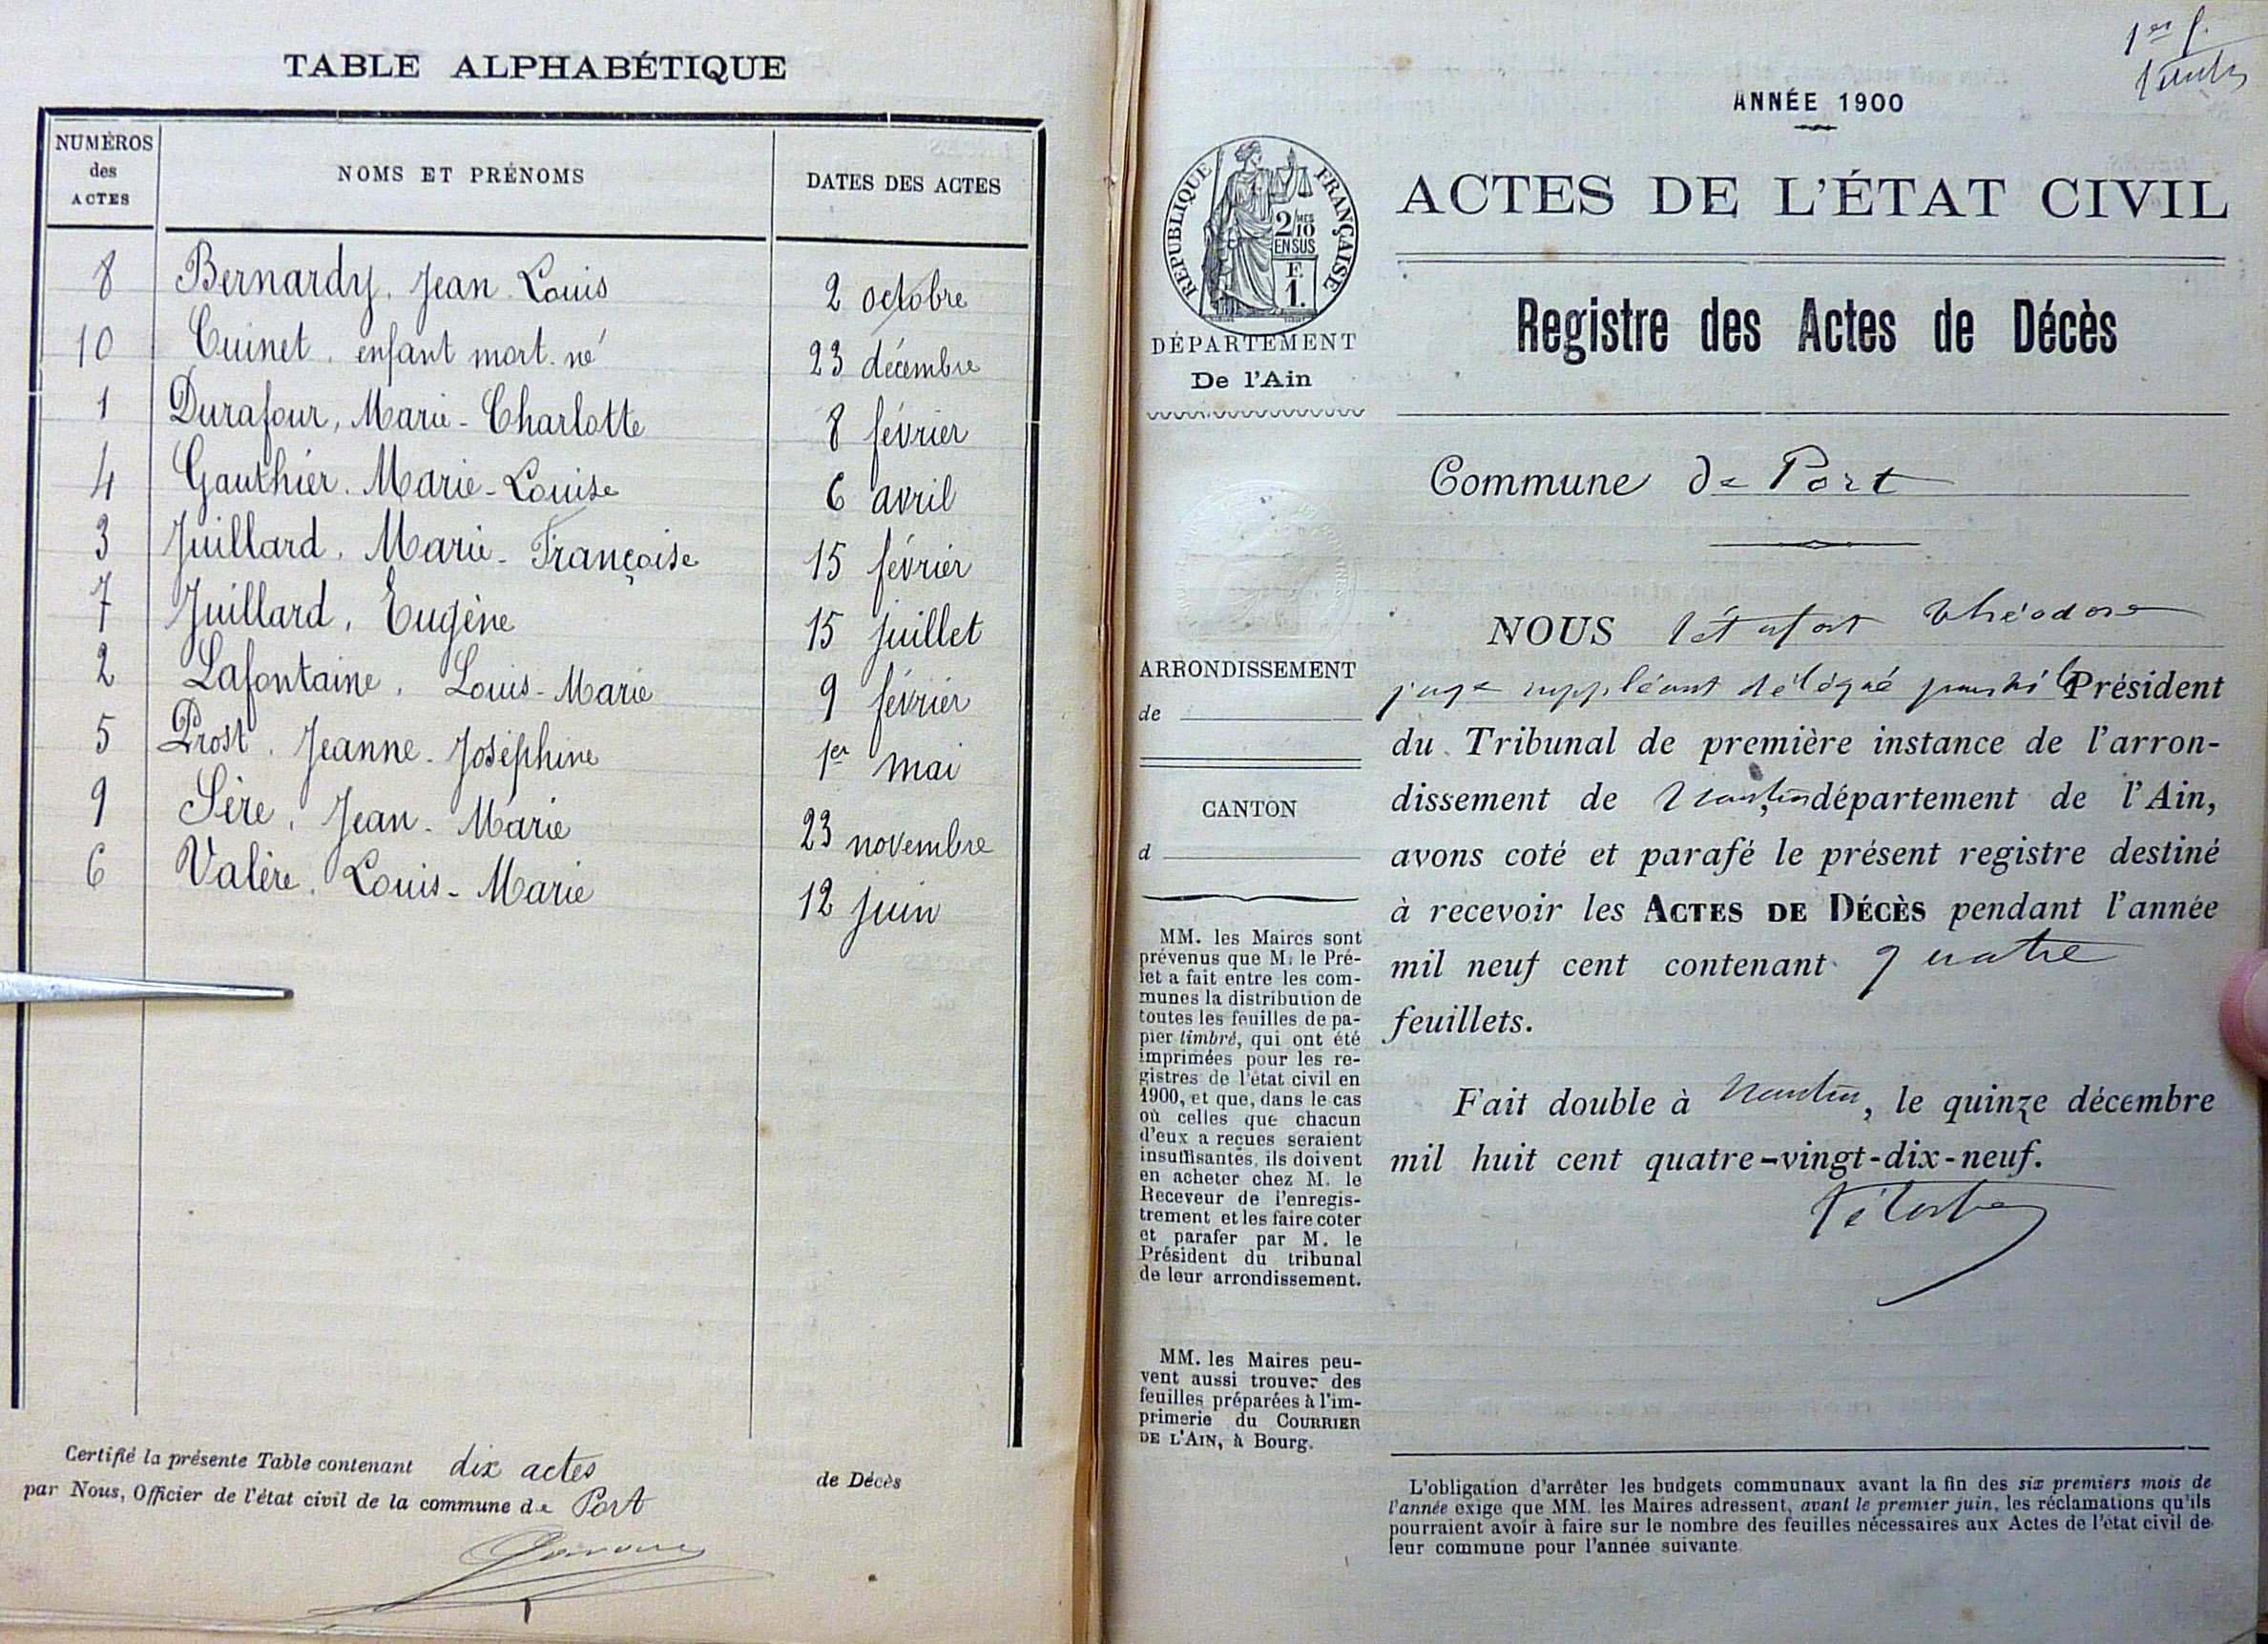 TABLE ALPHABÉTIQUE
NUMÉROS
des
ACTES
NOMS ET PRÉNOMS
DATES DES ACTES
8 Bernardy, Jean Louis 2 octobre
10 Cuinet, enfant mort-né 23 décembre
1 Durafour, Marie-Charlotte 8 février
4 Gauthier, Marie-Louise 6 avril
3 Juillard, Marie-Françoise 15 février
7 Juillard, Eugène 15 juillet
2 Lafontaine, Louis-Marie 9 février
5 Prost, Jeanne-Joséphine 1er mai
9 Sère, Jean-Marie 23 novembre
6 Valère, Louis-Marie 12 juin
Certifié la présente Table contenant dix actes de Décès
par Nous, Officier de l'état civil de la commune de Port
ANNÉE 1900
RÉPUBLIQUE FRANÇAISE
2/10 MES
EN SUS
F.
1.
DÉPARTEMENT
De l'Ain
ARRONDISSEMENT
de
CANTON
d
MM. les Maires sont
prévenus que M. le Pré-
fet a fait entre les com-
munes la distribution de
toutes les feuilles de pa-
pier timbré, qui ont été
imprimées pour les re-
gistres de l'état civil en
1900, et que, dans le cas
où celles que chacun
d'eux a reçues seraient
insuffisantes, ils doivent
en acheter chez M. le
Receveur de l'enregis-
trement et les faire coter
et parafer par M. le
Président du tribunal
de leur arrondissement.
MM. les Maires peu-
vent aussi trouver des
feuilles préparées à l'im-
primerie du COURRIER
DE L'AIN, à Bourg.
ACTES DE L'ÉTAT CIVIL
Registre des Actes de Décès
Commune de Port
NOUS Théodore
juge suppléant délégué Président
du Tribunal de première instance de l'arron-
dissement de Nantua, département de l'Ain,
avons coté et parafé le présent registre destiné
à recevoir les ACTES DE DÉCÈS pendant l'année
mil neuf cent contenant quatre
feuillets.
Fait double à Nantua, le quinze décembre
mil huit cent quatre-vingt-dix-neuf.
L'obligation d'arrêter les budgets communaux avant la fin des six premiers mois de
l'année exige que MM. les Maires adressent, avant le premier juin, les réclamations qu'ils
pourraient avoir à faire sur le nombre des feuilles nécessaires aux Actes de l'état civil de
leur commune pour l'année suivante